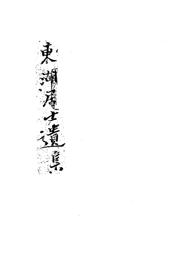 東湖處士遺集